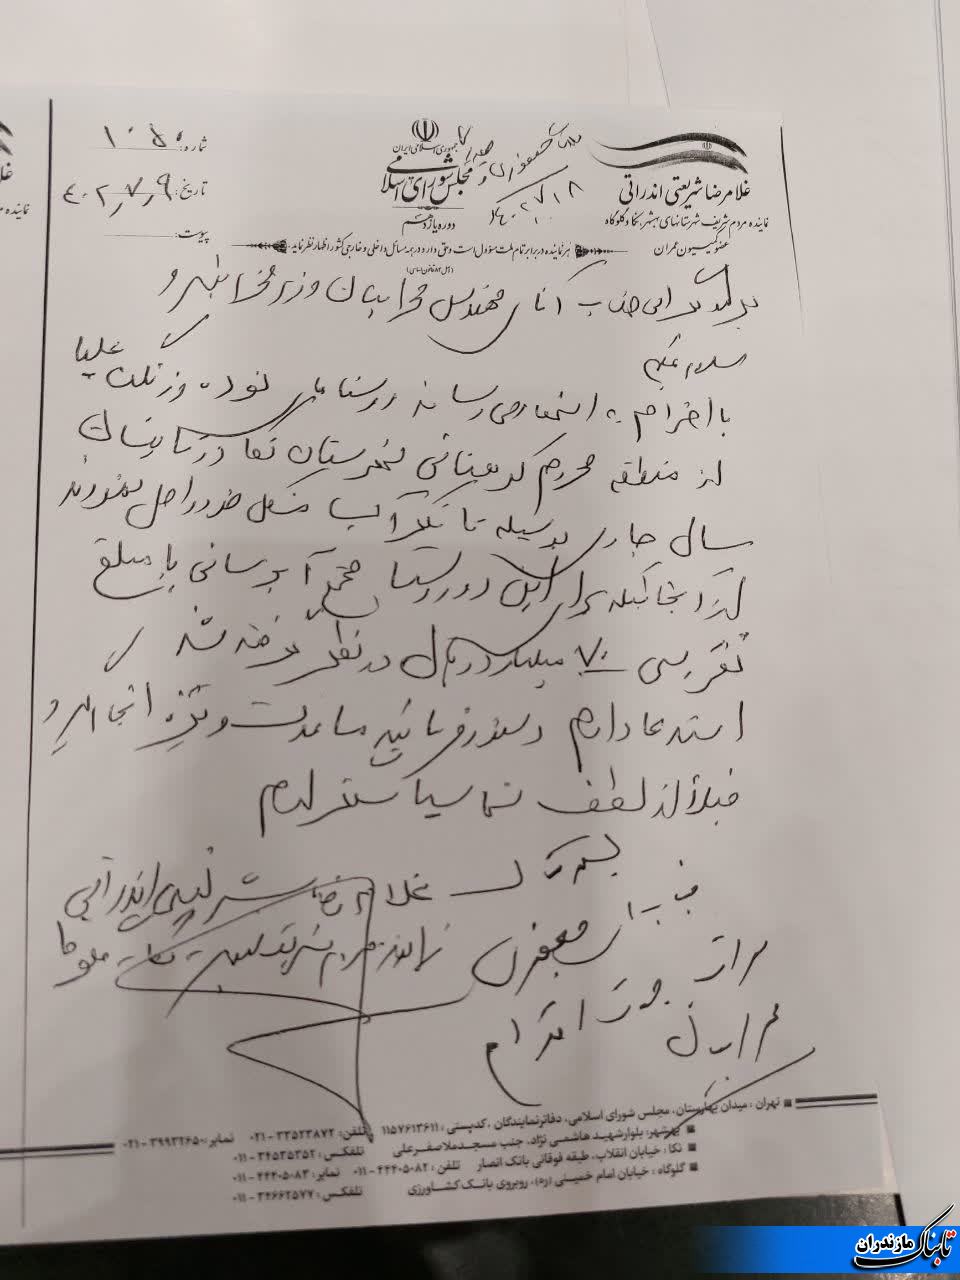 غلامرضا شریعتی اندراتی
نماینده مردم شریف شهرستانهای بهشهر، نکا و گلوگاه
عضو کمیسیون عمران
جمهوری اسلامی ایران
مجلس شورای اسلامی
دوره یازدهم
هر نماینده در برابر تمام ملت مسؤول است و حق دارد در همه مسائل داخلی و خارجی کشور اظهار نظر نماید.
(اصل ۸۴ قانون اساسی)
شماره: ۱۰۵
تاریخ: ۴۰۲/۷/۹
پیوست:
برادر گرامی جناب آقای مهندس محرابیان وزیر محترم نیرو
سلام علیکم
با احترام به استحضار می رساند روستاهای نوده و زنگت علیا
از منطقه محروم کوهستانی شهرستان نکا در تابستان
سال جاری بوسیله تانکر آب مشکل خود را حل نمودند
از آنجائیکه برای این دو روستا مجتمع آبرسانی با مبلغ
تقریبی ۷۰ میلیارد ریال در نظر گرفته شد
استدعا دارم دستور فرمائید مساعدت ویژه انجام گیرد
قبلاً از لطف شما سپاسگزارم
غلامرضا شریعتی اندراتی
نماینده مردم شریف بهشهر نکا گلوگاه
جناب آقای جعفری
مراتب جهت اقدام
محرابیان
تهران: میدان بهارستان، مجلس شورای اسلامی، دفاتر نمایندگان، کدپستی: ۱۱۵۷۶۱۳۶۱۱ تلفن: ۳۳۵۲۳۸۷۲ - ۰۲۱ نمابر: ۳۹۹۳۲۶۵۰ - ۰۲۱
بهشهر: بلوار شهید هاشمی نژاد، جنب مسجد ملاصفرعلی تلفکس: ۳۴۵۳۵۳۵۲ - ۰۱۱
نکا: خیابان انقلاب، طبقه فوقانی بانک انصار تلفن: ۴۴۴۰۵۰۸۲ - ۰۱۱ نمابر: ۴۴۴۰۵۰۸۳ - ۰۱۱
گلوگاه: خیابان امام خمینی (ره)، روبروی بانک کشاورزی تلفکس: ۳۴۶۶۲۵۷۷ - ۰۱۱
تابناک مازندران